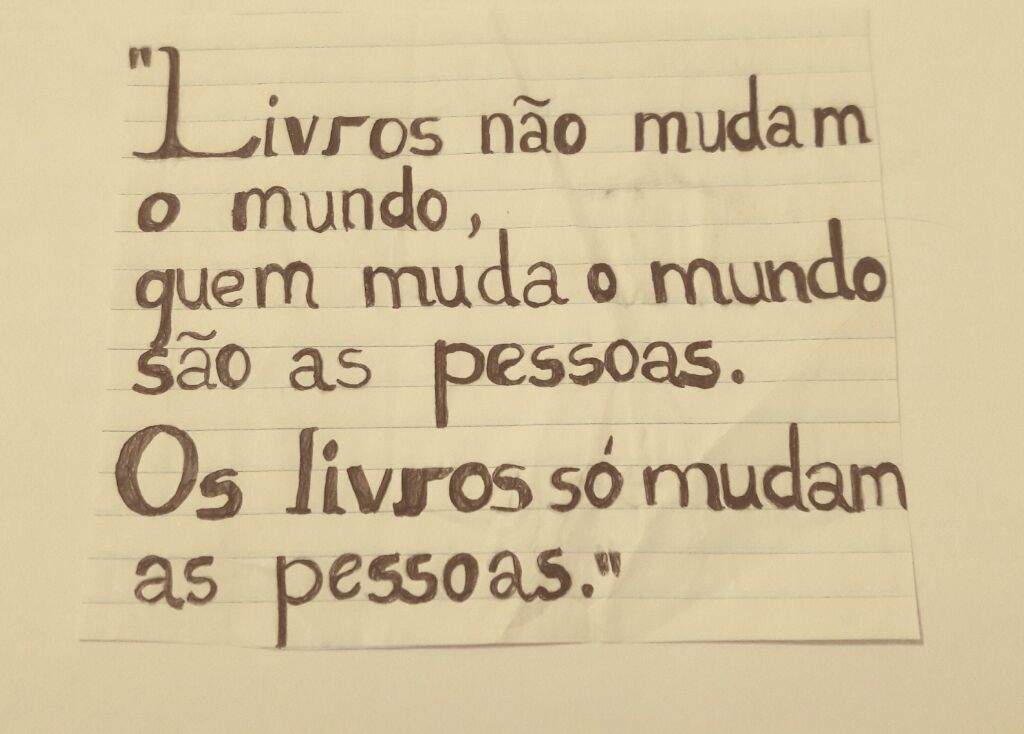 "Livros não mudam
o mundo,
quem muda o mundo
são as pessoas.
Os livros só mudam
as pessoas."